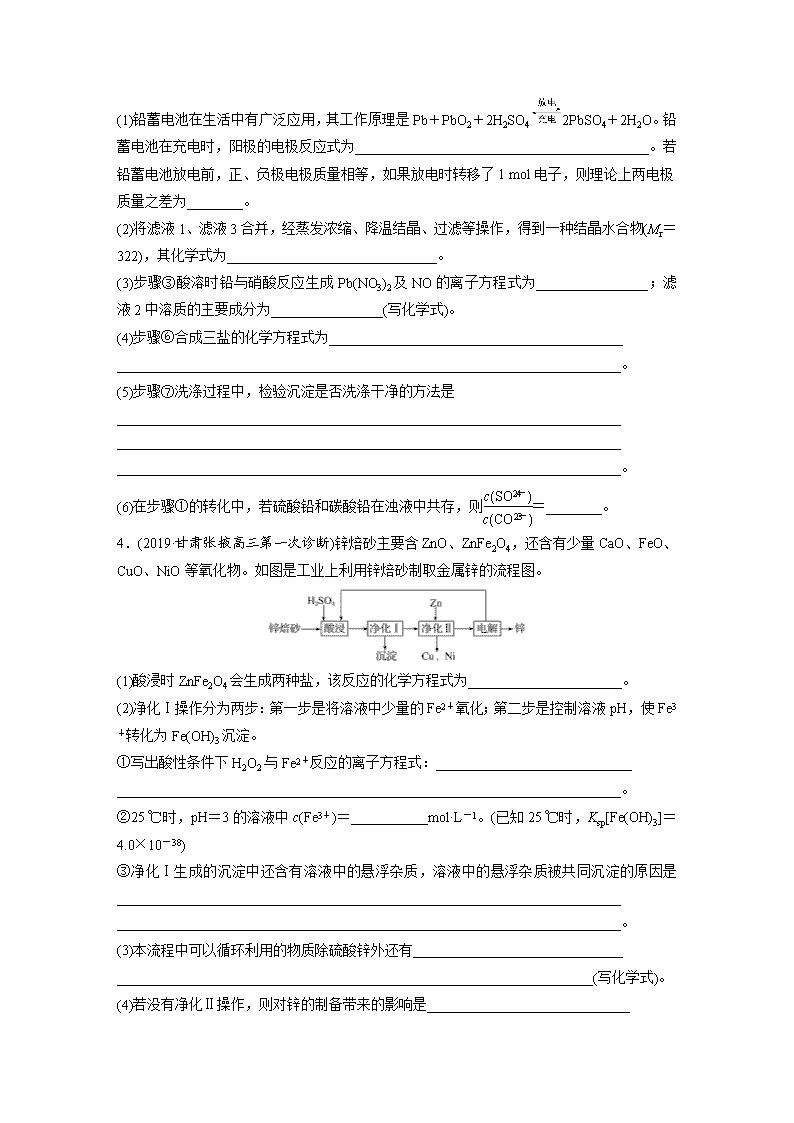 (1)铅蓄电池在生活中有广泛应用,其工作原理是Pb+PbO₂+2H₂SO₄ 放电 充电 2PbSO₄+2H₂O。铅
蓄电池在充电时,阳极的电极反应式为__________________________________________。若
铅蓄电池放电前,正、负极电极质量相等,如果放电时转移了1 mol电子,则理论上两电极
质量之差为________。
(2)将滤液1、滤液3合并,经蒸发浓缩、降温结晶、过滤等操作,得到一种结晶水合物(Mᵣ=
322),其化学式为______________________________。
(3)步骤③酸溶时铅与硝酸反应生成Pb(NO₃)₂及NO的离子方程式为________________;滤
液2中溶质的主要成分为________________(写化学式)。
(4)步骤⑥合成三盐的化学方程式为__________________________________________
________________________________________________________________________。
(5)步骤⑦洗涤过程中,检验沉淀是否洗涤干净的方法是
________________________________________________________________________
________________________________________________________________________
________________________________________________________________________。
(6)在步骤①的转化中,若硫酸铅和碳酸铅在浊液中共存,则c(SO₄²⁻)/c(CO₃²⁻)=________。
4.(2019·甘肃张掖高三第一次诊断)锌焙砂主要含ZnO、ZnFe₂O₄,还含有少量CaO、FeO、
CuO、NiO等氧化物。如图是工业上利用锌焙砂制取金属锌的流程图。
H₂SO₄ Zn
锌焙砂 酸浸 净化Ⅰ 净化Ⅱ 电解 锌
沉淀 Cu、Ni
(1)酸浸时ZnFe₂O₄会生成两种盐,该反应的化学方程式为______________________。
(2)净化Ⅰ操作分为两步:第一步是将溶液中少量的Fe²⁺氧化;第二步是控制溶液pH,使Fe³
⁺转化为Fe(OH)₃沉淀。
①写出酸性条件下H₂O₂与Fe²⁺反应的离子方程式:____________________________
________________________________________________________________________。
②25 ℃时,pH=3的溶液中c(Fe³⁺)=___________mol·L⁻¹。(已知25 ℃时,Ksp[Fe(OH)₃]=
4.0×10⁻³⁸)
③净化Ⅰ生成的沉淀中还含有溶液中的悬浮杂质,溶液中的悬浮杂质被共同沉淀的原因是
________________________________________________________________________
________________________________________________________________________。
(3)本流程中可以循环利用的物质除硫酸锌外还有______________________________
____________________________________________________________________(写化学式)。
(4)若没有净化Ⅱ操作,则对锌的制备带来的影响是_____________________________